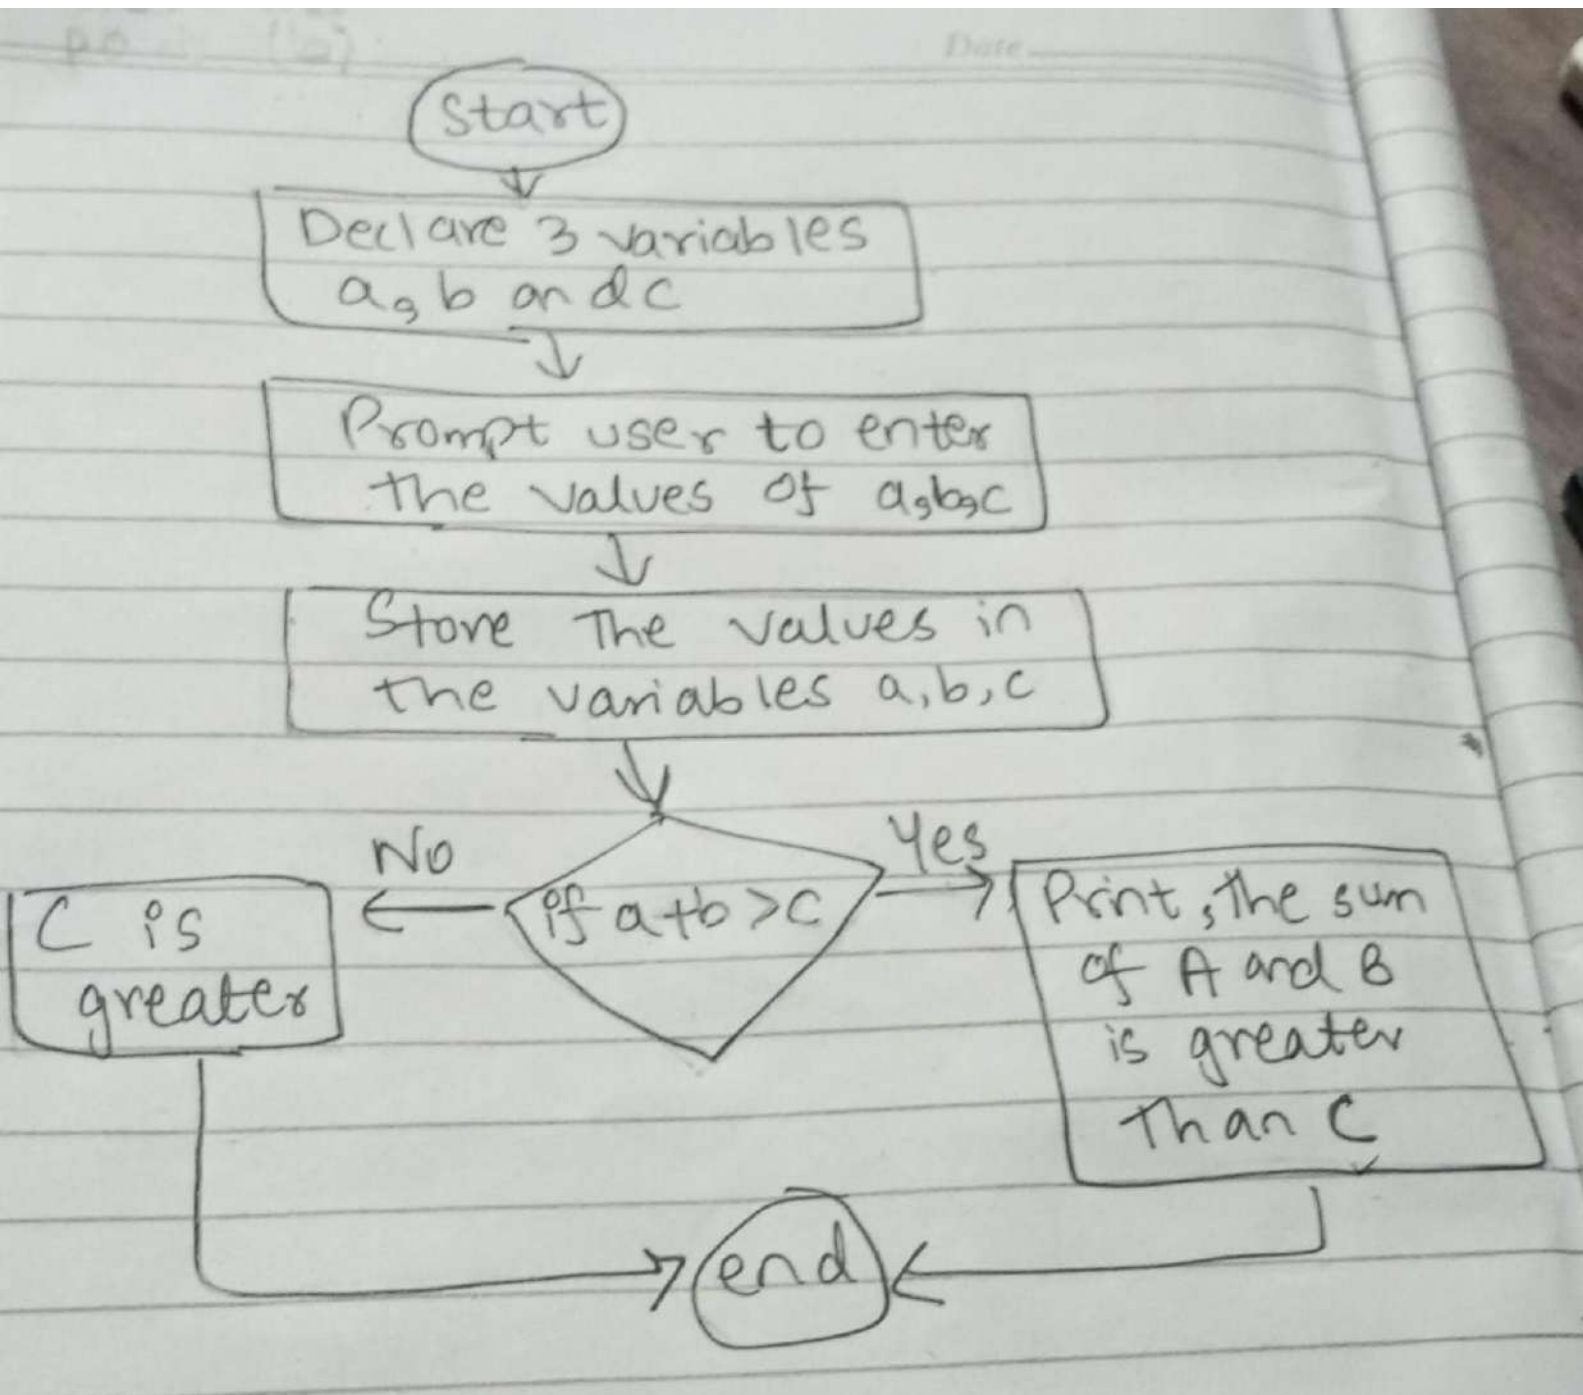 Date
Start
Declare 3 variables
a, b and c
Prompt user to enter
the values of a,b,c
Store The values in
the variables a,b,c
No
Yes
if a+b>c
C is
greater
Print, The sum
of A and B
is greater
Than C
end